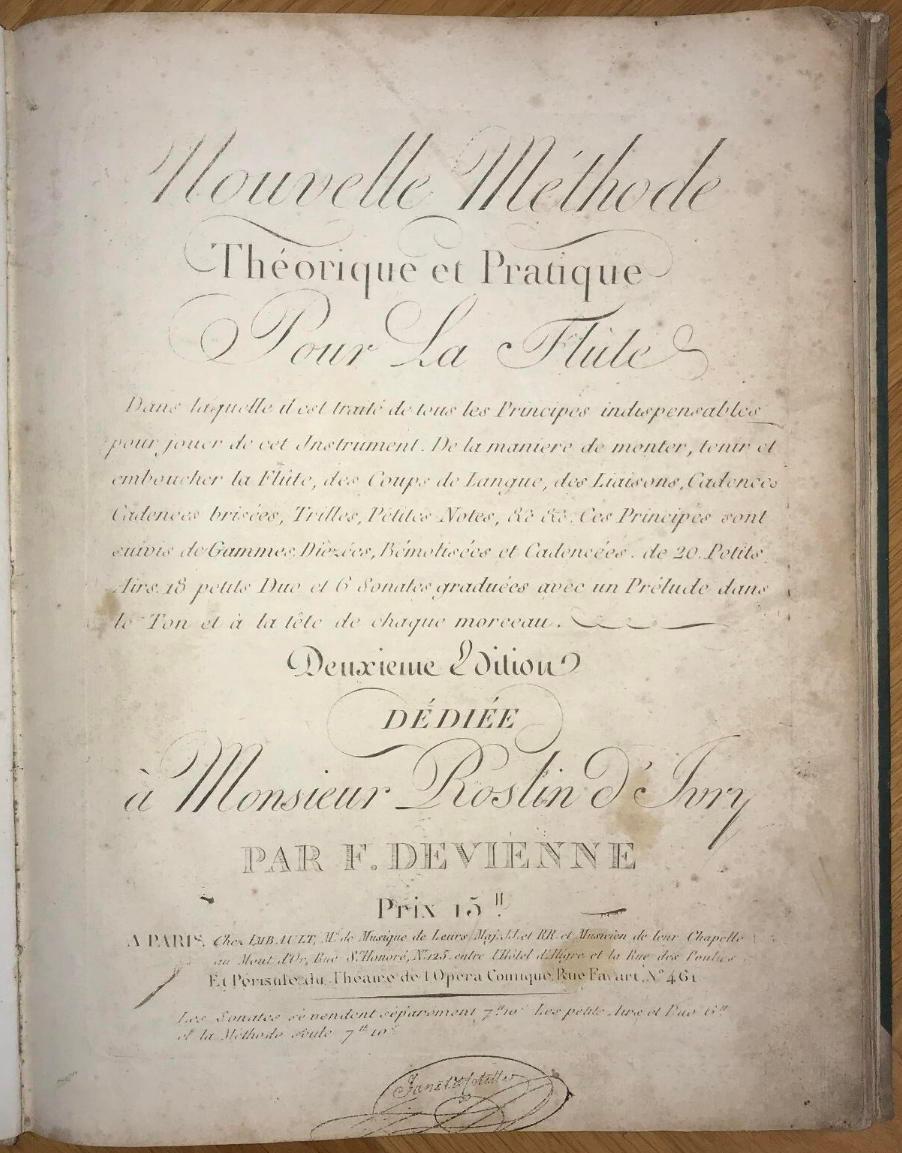 Nouvelle Méthode
Théorique et Pratique
Pour La Flûte
Dans laquelle il est traité de tous les Principes indispensables
pour jouer de cet Instrument. De la maniere de monter, tenir et
emboucher la Flûte, des Coups de Langue, des Liaisons, Cadences
Cadences brisées, Trilles, Petites Notes, &c &c. Ces Principes sont
suivis de Gammes Diezées, Bémolisées et Cadencées. de 20. Petits
Airs. 18 petits Duo et 6 Sonates graduées avec un Prélude dans
le Ton et à la tête de chaque morceau.
Deuxieme Edition
DÉDIÉE
à Monsieur Roslin d'Ivry
PAR F. DEVIENNE
Prix 15ᴴ.
A PARIS, Chez IMBAULT, Mᵈ de Musique de Leurs Maj. I.I. et RR. et Musicien de leur Chapelle
au Mont d'Or, Rue Sᵗ Honoré, Nº 125. entre l'Hôtel d'Aligre et la Rue des Poulies
Et Péristile du Théatre de l'Opera Comique Rue Favart, Nº 461
Les Sonates se vendent séparément 7ᴴ 10ˢ Les petits Airs et Duo 6ᴴ
et la Méthode seule 7ᴴ 10ˢ
Janet et Cotelle